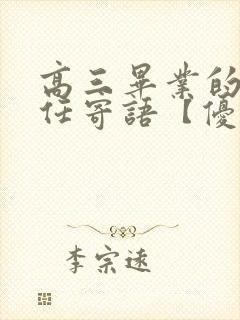 高三畢業的
任寄語【優
李宗遠